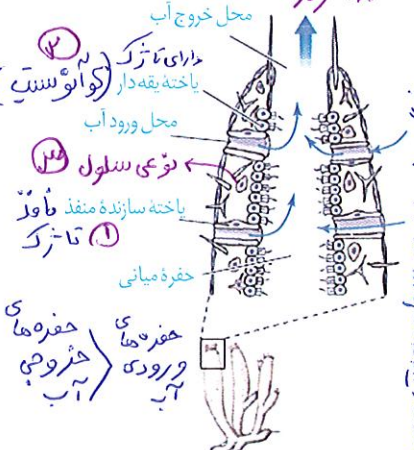 محل خروج آب
۲
دارای تاژک
یاخته یقه‌دار (کوآنوسیت)
محل ورود آب
۳ نوعی سلول
یاختهٔ سازندهٔ منفذ فاقد
۱ تاژک
حفرهٔ میانی
حفره‌های ورودی آب > حفره‌های خروجی آب